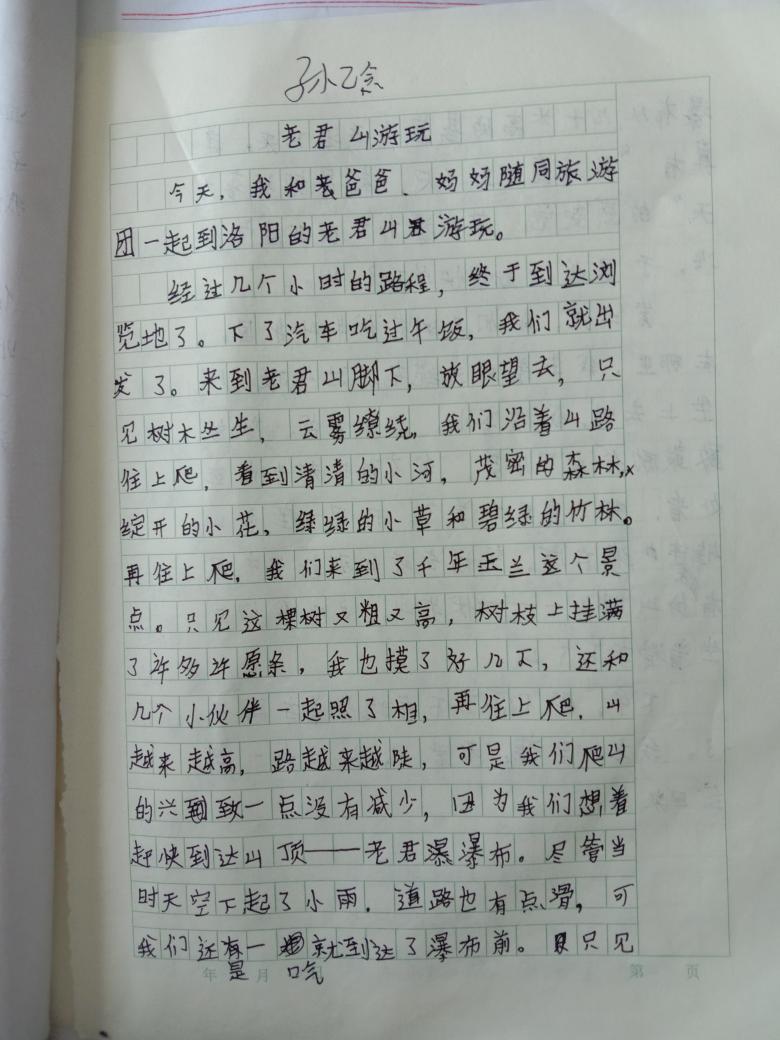 孙乙念
老君山游玩
今天，我和爸爸、妈妈随同旅游
团一起到洛阳的老君山游玩。
经过几个小时的路程，终于到达浏
览地了。下了汽车吃过午饭，我们就出
发了。来到老君山脚下，放眼望去，只
见树木丛生，云雾缭绕，我们沿着山路
往上爬，看到清清的小河，茂密的森林，
绽开的小花，绿绿的小草和碧绿的竹林。
再往上爬，我们来到了千年玉兰这个景
点。只见这棵树又粗又高，树枝上挂满
了许多许愿条，我也摸了好几下，还和
几个小伙伴一起照了相，再往上爬，山
越来越高，路越来越陡，可是我们爬山
的兴致一点没有减少，因为我们想着
赶快到达山顶——老君瀑布。尽管当
时天空下起了小雨，道路也有点滑，可
我们还是一口气就到达了瀑布前。只见
年 月
第 页